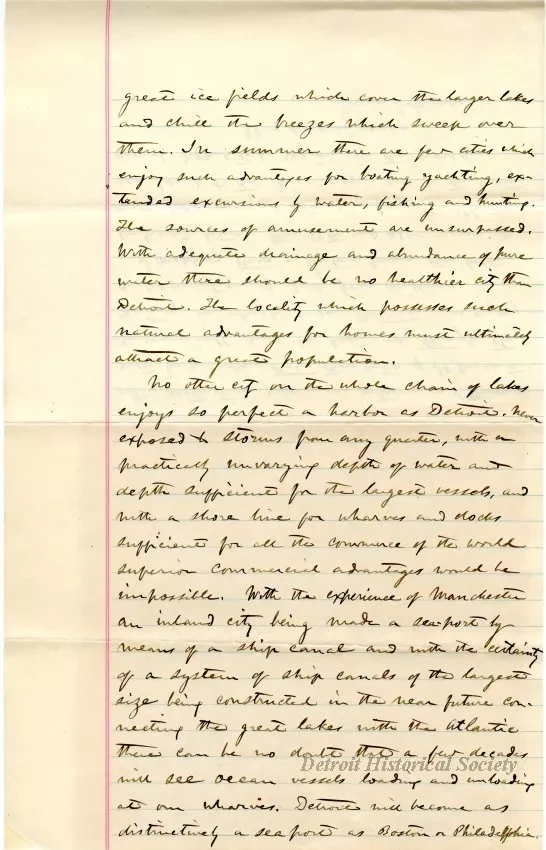 great ice fields which cover the larger lakes
and chill the breezes which sweep over
them. In summer there are few cities which
enjoy such advantages for boating yachting, ex-
tended excursions by water, fishing and hunting.
The sources of amusement are unsurpassed.
With adequate drainage and abundance of pure
water there should be no healthier city than
Detroit. The locality which possesses such
natural advantages for homes must ultimately
attract a great population.
No other city on the whole chain of lakes
enjoys so perfect a harbor as Detroit. Never
exposed to storms from any quarter, with a
practically unvarying depth of water and
depth sufficient for the largest vessels, and
with a shore line for wharves and docks
sufficient for all the commerce of the world
superior commercial advantages would be
impossible. With the experience of Manchester
an inland city being made a sea-port by
means of a ship canal and with the certainty
of a system of ship canals of the largest
size being constructed in the near future con-
necting the great lakes with the Atlantic
there can be no doubt that a few decades
will see ocean vessels loading and unloading
at our wharves. Detroit will become as
distinctively a sea port as Boston or Philadelphia.
Detroit Historical Society